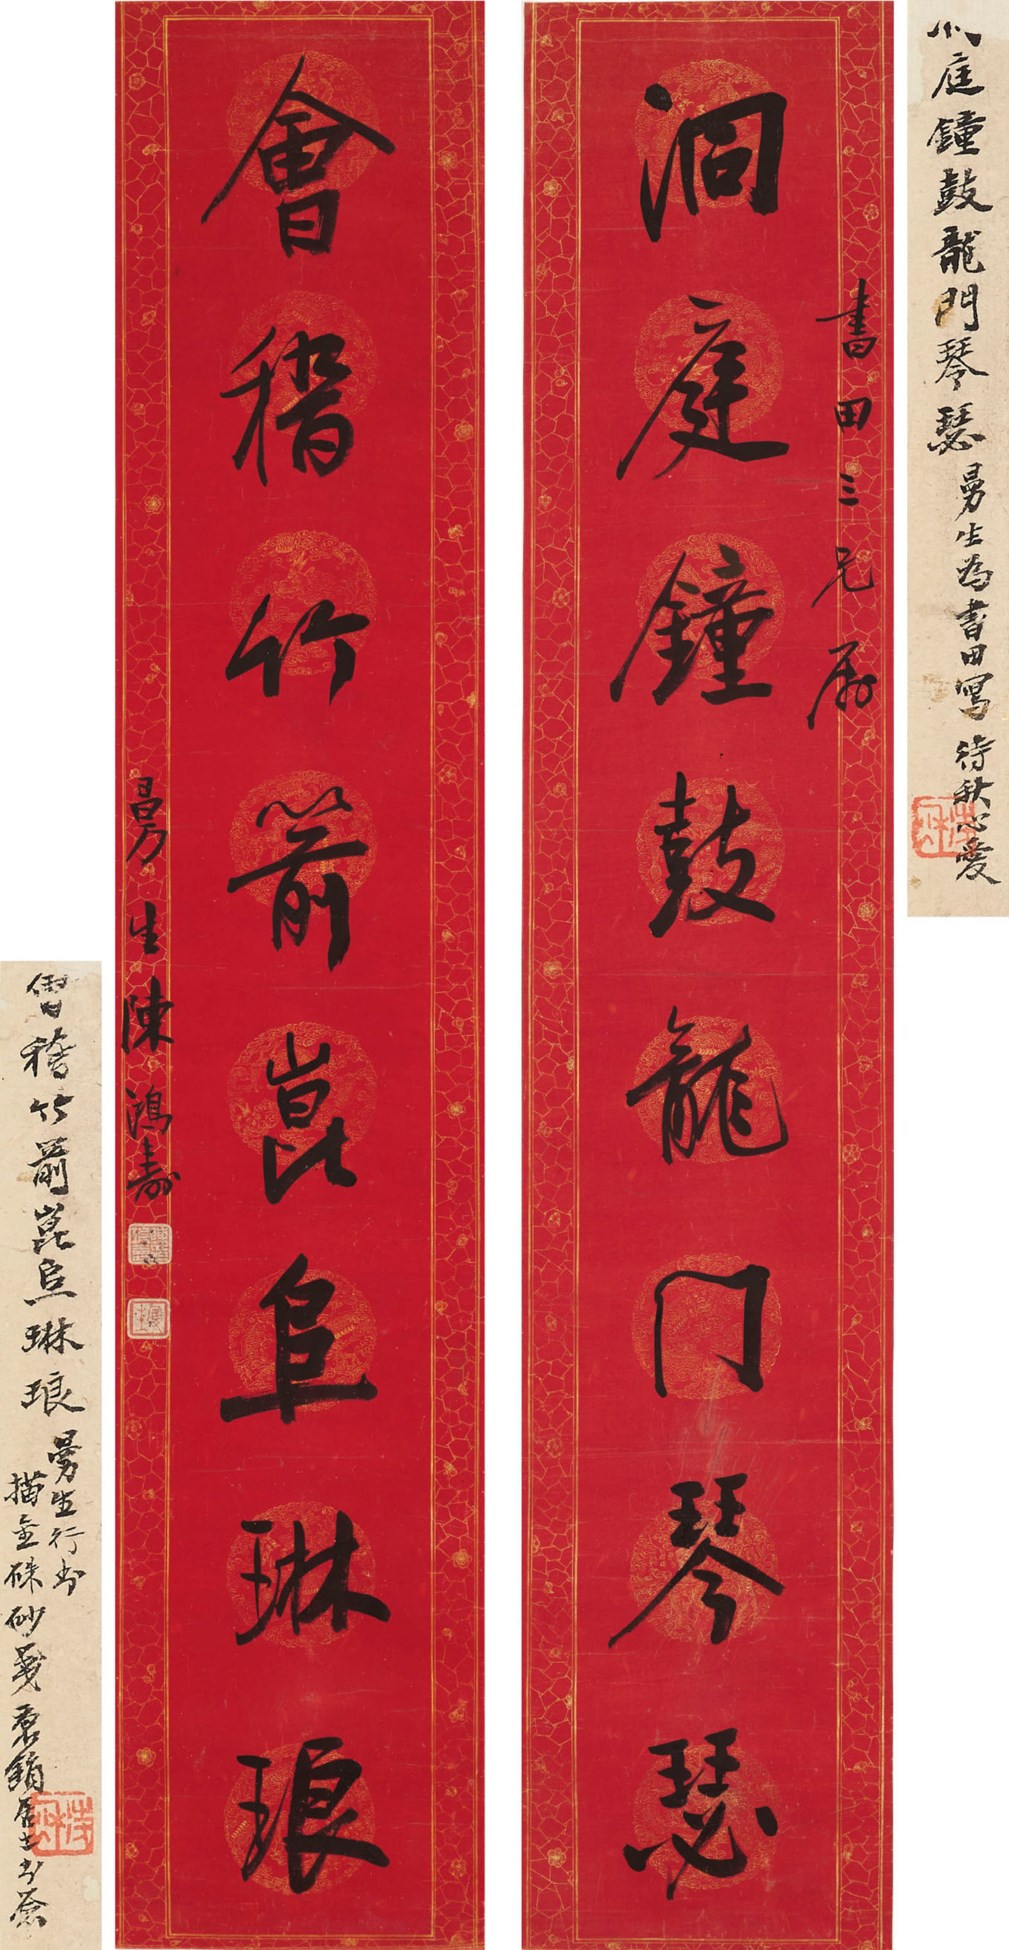 庭鐘鼓龍門琴瑟 曼生為書田寫 待秋心愛
書田三兄屬
洞庭鐘鼓龍門琴瑟
會稽竹箭崑阜琳琅
曼生陳鴻壽
會稽竹箭崑阜琳琅 曼生行书
描金硃砂箋 袌鋗居士书签